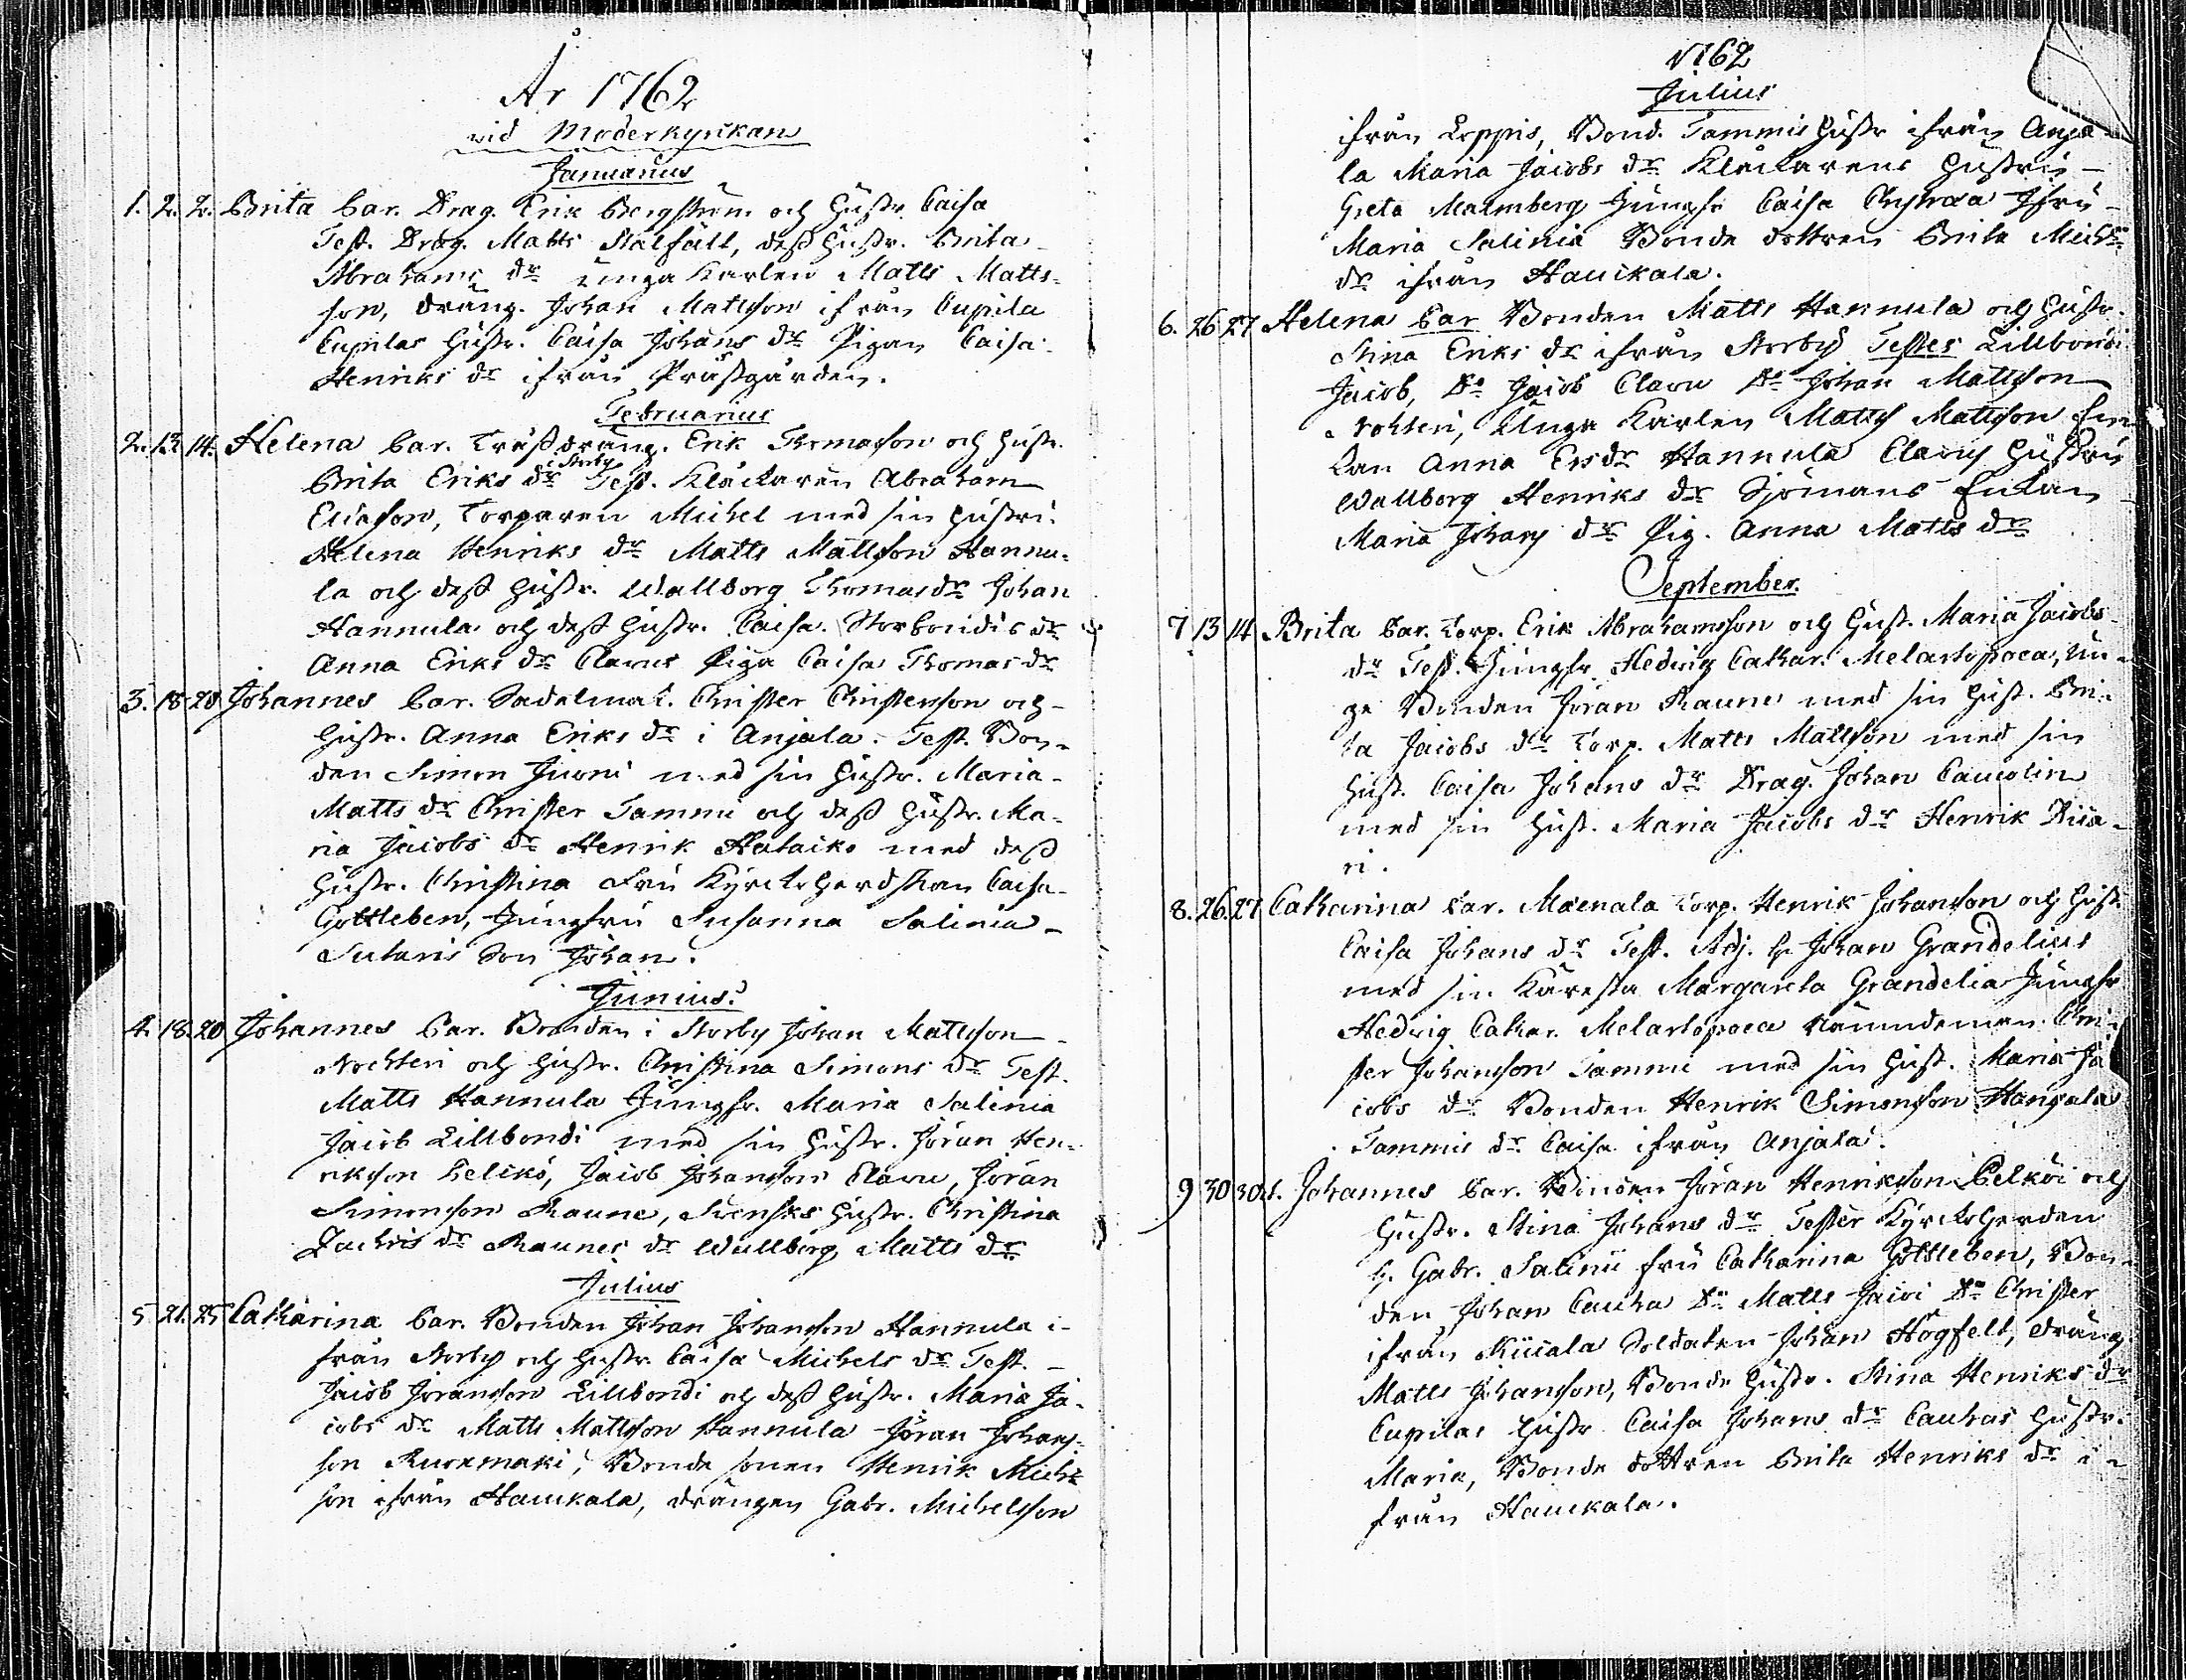 År 1762
vid Moderkyrkan
Januarius
1. 2. 2. Brita bar. Drag. Erik Bergström och hustr. Caisa
Test. Drag. Matts Stålfält, dess hustr. Brita
Abrahams dr unga Karlen Matts Matts-
son, dräng. Johan Mattsson ifrån Cupila
Cupilas hustr. Caisa Johans dr Pigan Caisa
Henriks dr ifrån Prästgården.
Februarius
2. 13. 14. Helena bar. dräng. Erik Thomasson och hustr.
Brita Eriks dr i Storby Test. Klåckaren Abraham
Eliasson, Torparen Michel med sin hustru
Helena Henriks dr Matts Mattsson Hannu-
la och dess hustr. Wallborg Thomas dr Johan
Hannula och dess hustr. Caisa. Storbondis dr
Anna Eriks dr Clavus Piga Caisa Thomas dr
3. 18. 20 Johannes bar. Sadelmak. Christer Christersson och
hustr. Anna Eriks dr i Anjala. Test. Bon-
den Simon Juoni med sin hustr. Maria
Matts dr Christer Tammi och dess hustr. Ma-
ria Jacobs dr Henrik Hataiko med dess
hustr. Christina Fru Kyrckoherdskan Caisa
Gottleben, Jungfru Susanna Salinia
Sutaris Son Johan.
Junius.
4. 18. 20 Johannes bar. Bonden i Storby Johan Mattsson
Nochteri och hustr. Christina Simons dr Test.
Matts Hannula Jungfr. Maria Salinia
Jacob Lillbondi med sin hustr. Jöran Hen-
riksson Pelkö, Jacob Johansson Clavu, Jöran
Simonsson Raune, Svensks hustr. Christina
Zachris dr Raunes dr Wallborg Matts dr
Julius
5 21. 25 Catharina bar. Bonden Johan Johansson Hannula i-
från Storby och hustr. Caisa Michels dr Test.
Jacob Jöransson Lillbondi och dess hustr. Maria Ja-
cobs dr Matts Mattsson Hannula Jöran Johans-
son Ruokmaki, Bonde sonen Henrik Michel
son ifrån Haukala, drängen Gabr. Michelsson
1762
Julius
ifrån Leppis, Bond. Tammis hustr ifrån Anja-
la Maria Jacobs dr Klåckarens hustru
Greta Malmberg Jungfr Caisa Jfru
Maria Salinia Bonde dottren Brita Michels
dr ifrån Haukala.
6. 26 27 Helena bar Bonden Matts Hannula och hustr.
Stina Eriks dr ifrån Storby Testes Lillbondi
Jacob, Do Jacob Clavu Do Johan Mattsson
Nohteri, Unga Karlen Matts Mattsson En-
kan Anna Ers dr Hannula Clavus hustru
Wallborg Henriks dr Sjömans Enkan
Maria Johans dr Pig. Anna Matts dr
September.
7 13 14 Brita bar. Torp. Erik Abrahamsson och hust. Maria Jacobs
dr Test. Jungfr. Hedvig Cathar. Melartopoea, Un-
ge Bonden Jöran Raune med sin hust. Bri-
ta Jacobs dr Torp. Matts Mattsson med sin
hust. Caisa Johans dr Drag. Johan Caucolin
med sin hust. Maria Jacobs dr Henrik Riia-
ri.
8. 26. 27. Catharina bar. Maenala Torp. Henrik Johansson och hust.
Caisa Johans dr Test. Adj. hr Johan Grandelius
med sin Käresta Margareta Grandelia Jungfr
Hedvig Cathar. Melartopoea Nämndeman Chri-
ster Johansson Tammi med sin hust. Maria Ja
cobs dr Bonden Henrik Simonsson Hangala
Tammis dr Caisa ifrån Anjala.
9 30 30 Johannes bar. Bonden Jöran Henriksson Pelköi och
hustr. Stina Johans dr Tester Kyrckoherden
h. Gabr. Salinii fru Catharina Gottleben, Bon-
den Johan Cauha Do Matts Jaivi Do Christer
ifrån Kiuala Soldaten Johan Högfelt, dräng
Matts Johansson, Bonde hustr. Stina Henriks dr
Cupilas hustr Caisa Johans dr Cauhas hustr.
Maria, Bonde dottren Brita Henriks dr i-
från Haukala.